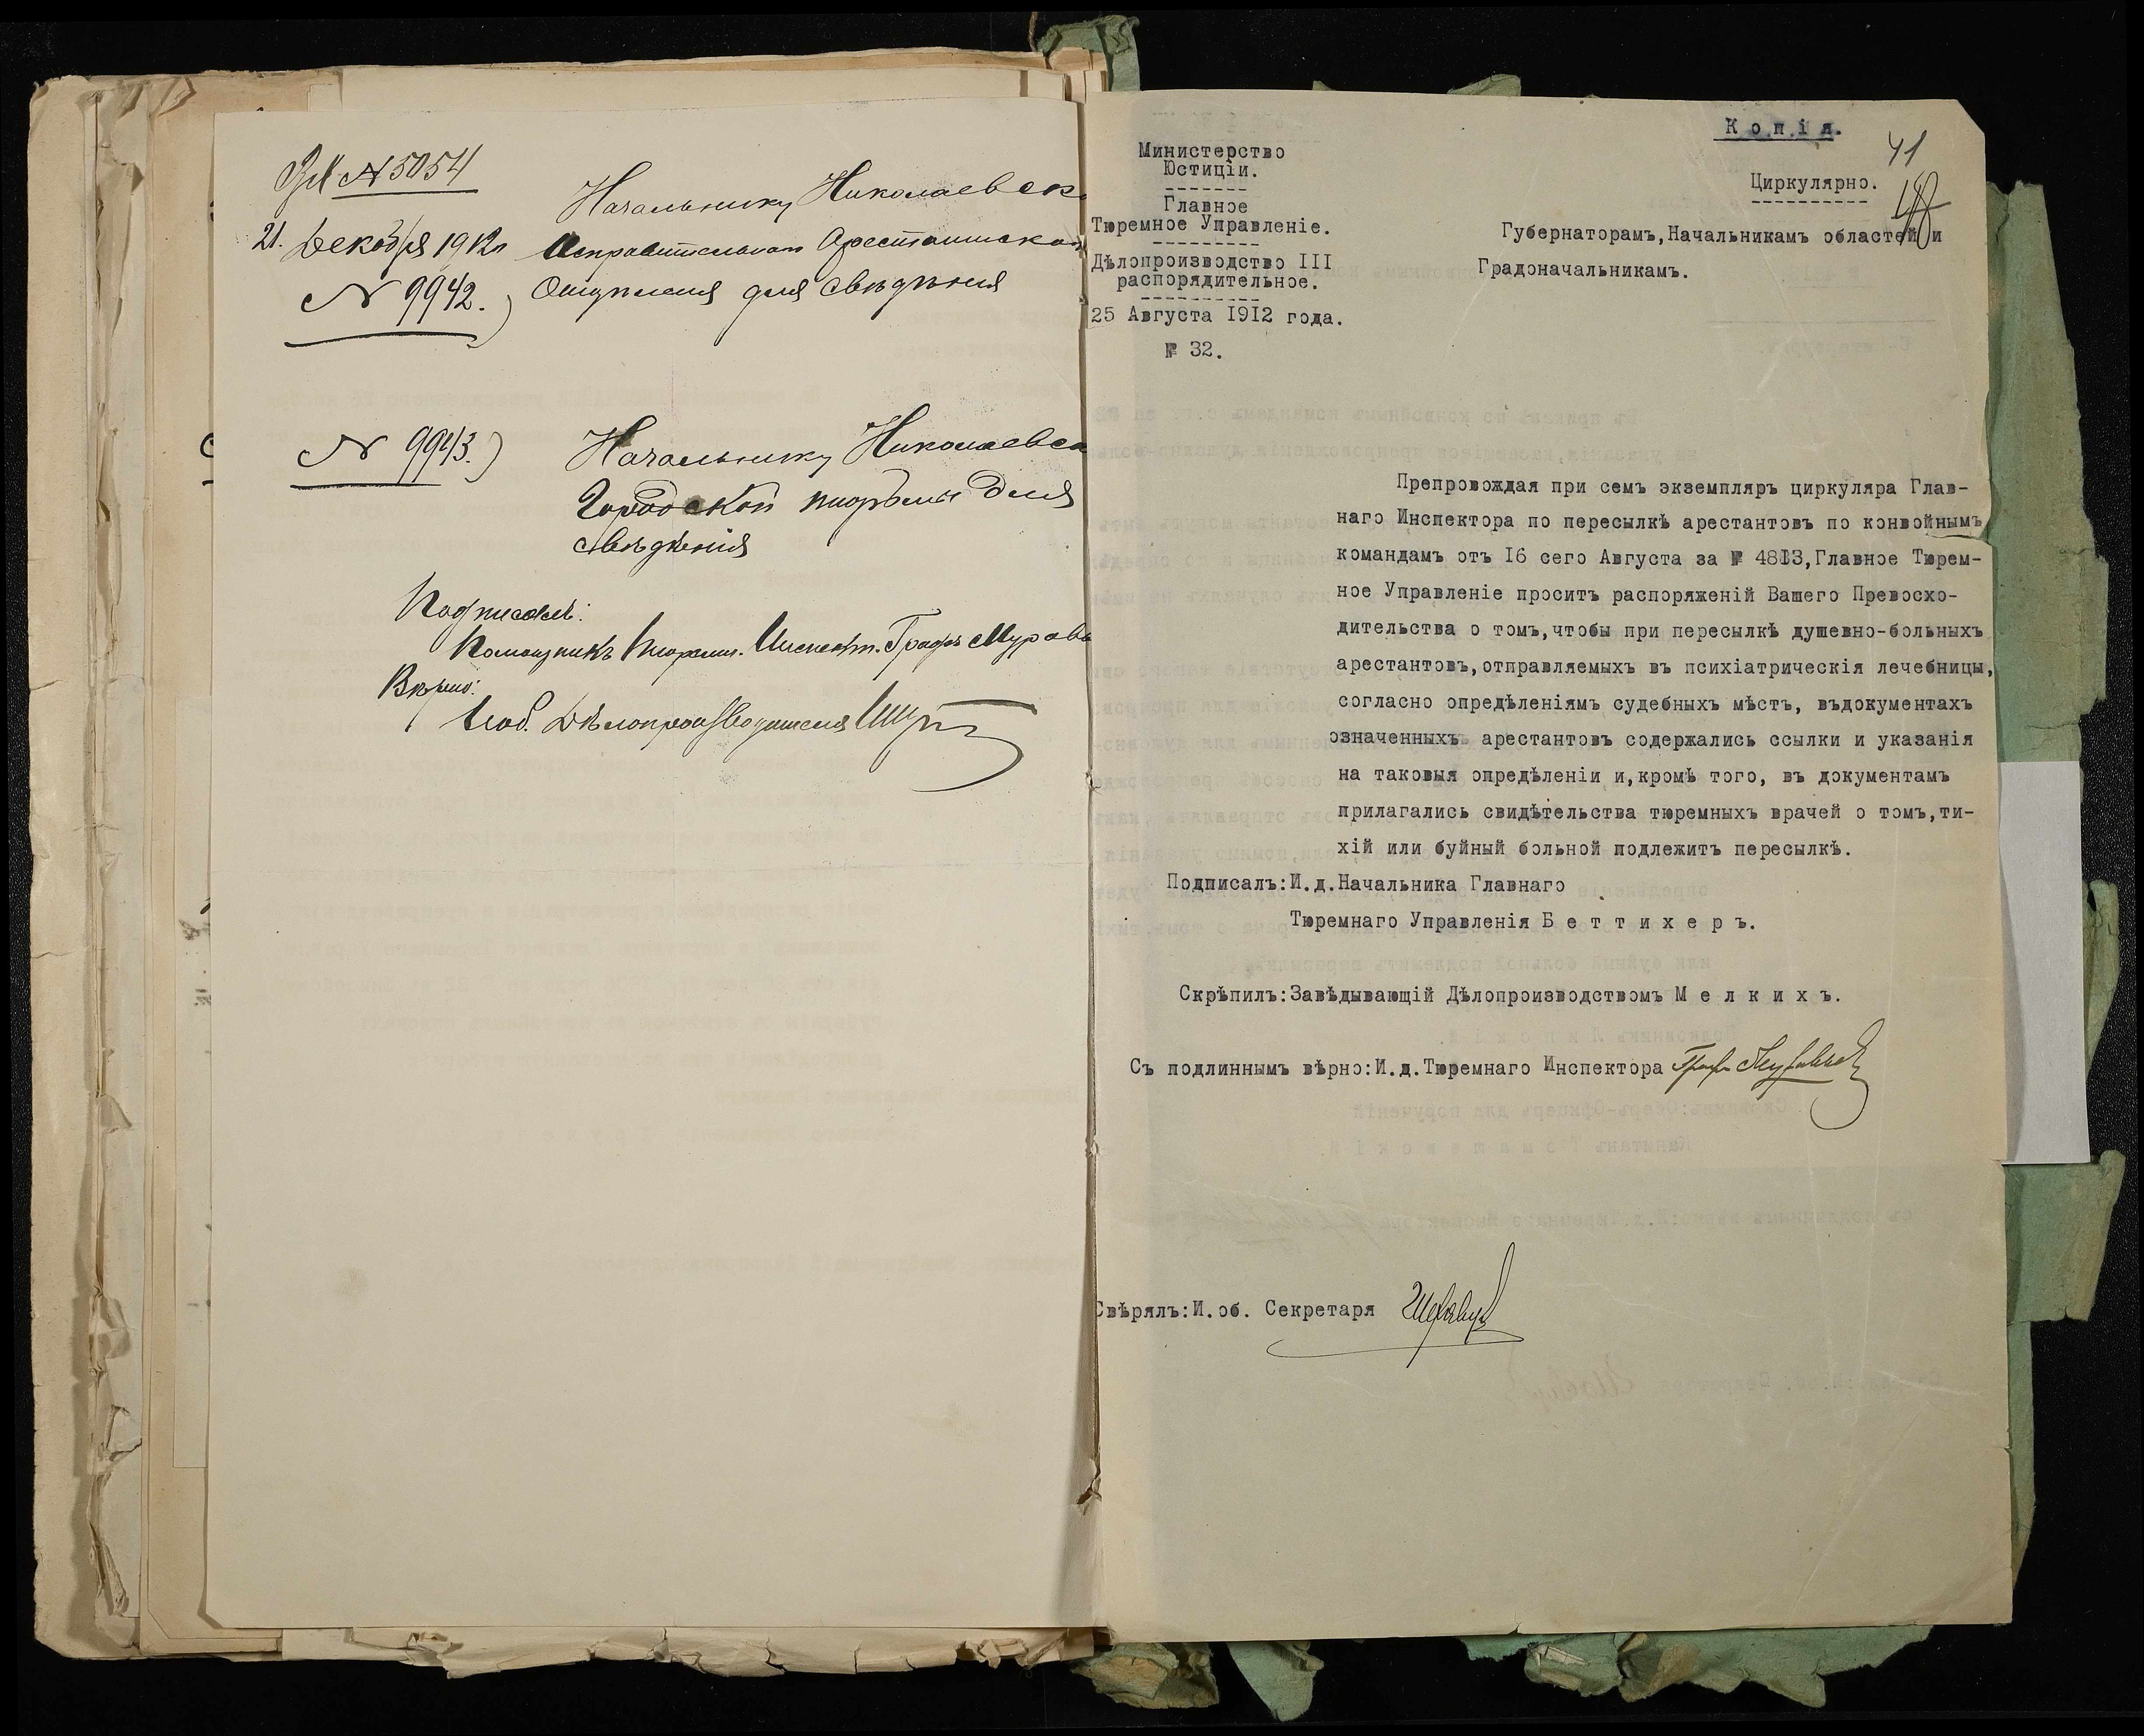 № 5054
21. Декабря 1912 г.
№ 9942.)
Начальнику Николаевск
Исправительнаго Арестантскаго
Отдѣленія для свѣдѣнія
№ 9943.)
Начальнику Николаевск
Городской тюрьмы для
свѣдѣнія
Подписалъ:
Помощникъ Тюремн. Инспект. Графъ Мурав
Вѣрно:
Дѣлопроизводителя
Копія.
41
Министерство
Юстиціи.
Главное
Тюремное Управленіе.
Дѣлопроизводство III
распорядительное.
25 Августа 1912 года.
№ 32.
Циркулярно.
Губернаторамъ,Начальникамъ областей и
Градоначальникамъ.
Препровождая при семъ экземпляръ циркуляра Глав-
наго Инспектора по пересылкѣ арестантовъ по конвойнымъ
командамъ отъ 16 сего Августа за № 4813,Главное Тюрем-
ное Управленіе проситъ распоряженій Вашего Превосхо-
дительства о томъ,чтобы при пересылкѣ душевно-больныхъ
арестантовъ,отправляемыхъ въ психіатрическія лечебницы,
согласно опредѣленіямъ судебныхъ мѣстъ, въдокументахъ
означенныхъ арестантовъ содержались ссылки и указанія
на таковыя опредѣленіи и,кромѣ того, въ документамъ
прилагались свидѣтельства тюремныхъ врачей о томъ,ти-
хій или буйный больной подлежитъ пересылкѣ.
Подписалъ:И.д.Начальника Главнаго
Тюремнаго Управленія Беттихеръ.
Скрѣпилъ:Завѣдывающій Дѣлопроизводствомъ Мелкихъ.
Съ подлиннымъ вѣрно:И.д.Тюремнаго Инспектора Графъ Муравьевъ
Свѣрялъ:И.об. Секретаря